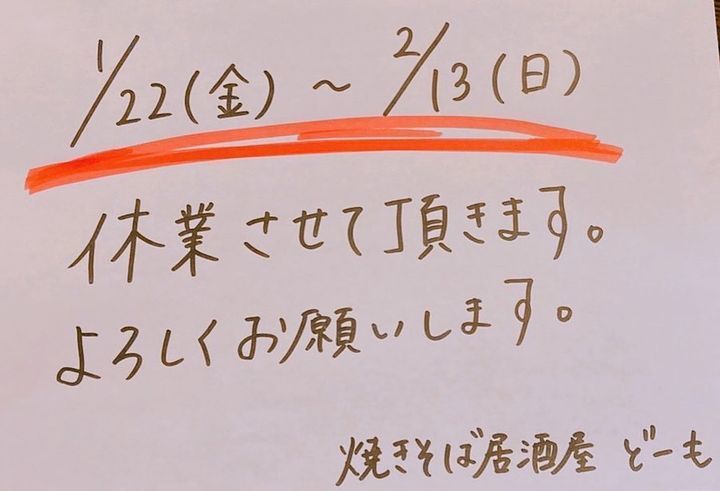 1/22(金)~2/13(日)
休業させて頂きます。
よろしくお願いします。
焼きそば居酒屋 どーも